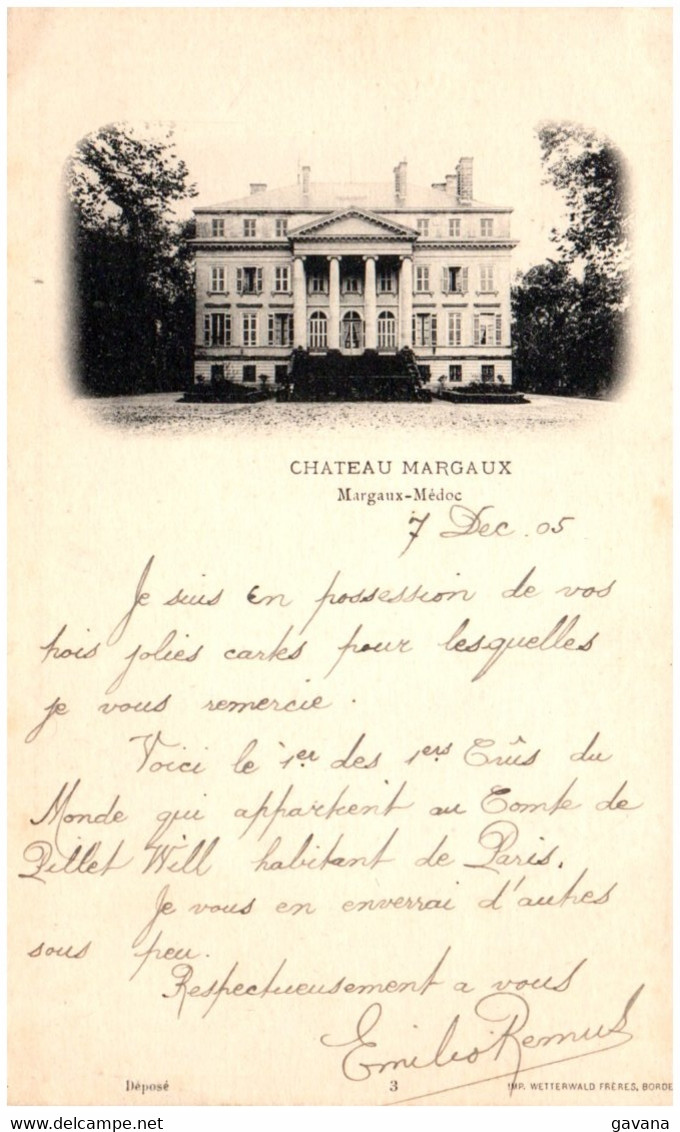 CHATEAU MARGAUX
Margaux-Médoc
7 Dec. 05
Je suis en possession de vos
trois jolies cartes pour lesquelles
je vous remercie.
Voici le 1er des 1ers Crûs du
Monde qui appartient au Comte de
Pillet Will habitant de Paris.
Je vous en enverrai d'autres
sous peu.
Respectueusement a vous
Emilio Remus
Déposé 3 IMP. WETTERWALD FRÈRES, BORDE
delcampe.net gavana